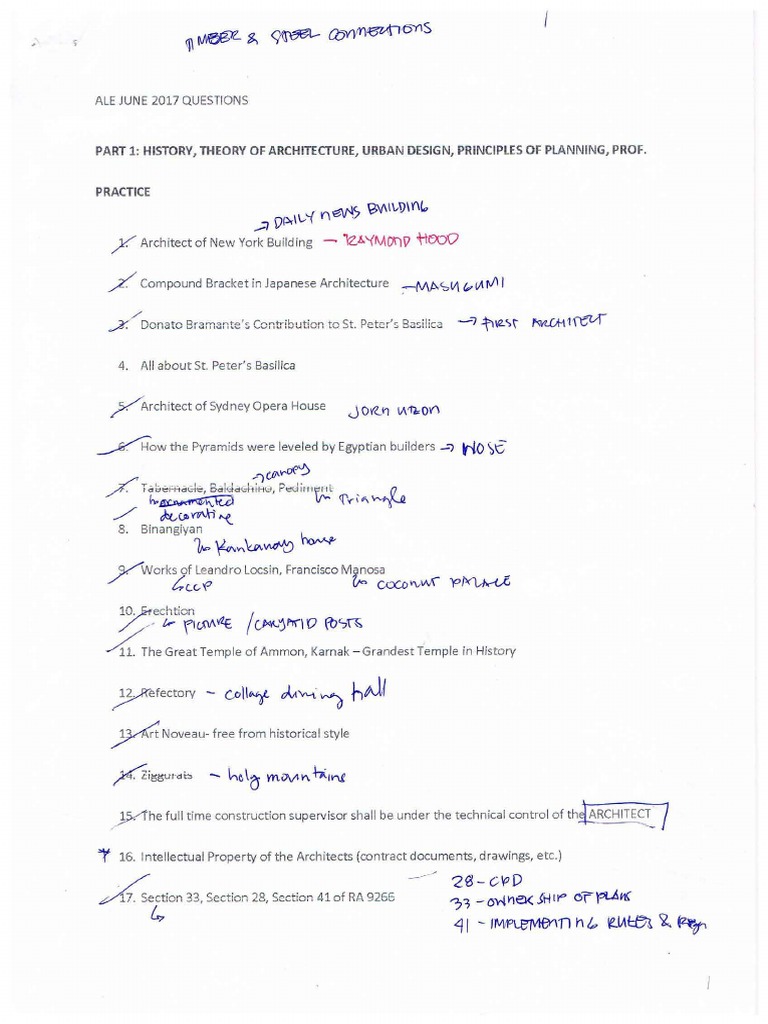 TIMBER & STEEL CONNECTIONS
1
ALE JUNE 2017 QUESTIONS
PART 1: HISTORY, THEORY OF ARCHITECTURE, URBAN DESIGN, PRINCIPLES OF PLANNING, PROF.
PRACTICE
→ DAILY NEWS BUILDING
1. Architect of New York Building – RAYMOND HOOD
2. Compound Bracket in Japanese Architecture – MASUGUMI
3. Donato Bramante's Contribution to St. Peter's Basilica → FIRST ARCHITECT
4. All about St. Peter's Basilica
5. Architect of Sydney Opera House JORN UTZON
6. How the Pyramids were leveled by Egyptian builders → HOSE
→ canopy
7. Tabernacle, Baldachino, Pediment
↳ ornamented ↳ Triangle
decorative
8. Binangiyan
↳ Kankanay house
9. Works of Leandro Locsin, Francisco Manosa
↳ CCP ↳ COCONUT PALACE
10. Erechtion
↳ PICTURE / CARYATID POSTS
11. The Great Temple of Ammon, Karnak – Grandest Temple in History
12. Refectory – collage dining hall
13. Art Noveau- free from historical style
14. Ziggurats – holy mountains
15. The full time construction supervisor shall be under the technical control of the ARCHITECT
* 16. Intellectual Property of the Architects (contract documents, drawings, etc.)
28 - CPD
17. Section 33, Section 28, Section 41 of RA 9266
33 - OWNERSHIP OF PLANS
↳ 41 - IMPLEMENTING RULES & Regn
1